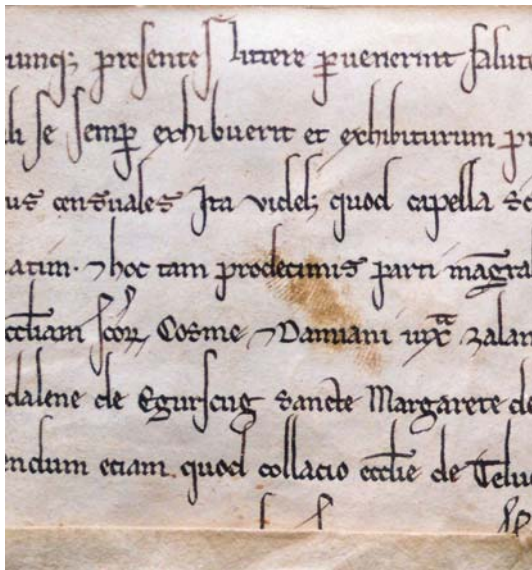 umq; presentes littere puenerint salute
li se semp exhibuerit et exhibiturum pr
us censuales Ita videlz quod capella se
atim. ⁊ hoc tam prodecimis parti magra
eccliam scorꝝ Cosme ⁊ Damiani iuxͣ zalan
dalene de Egurscug sancte Margarete de
endum etiam. quod collacio ecclie de Teluc